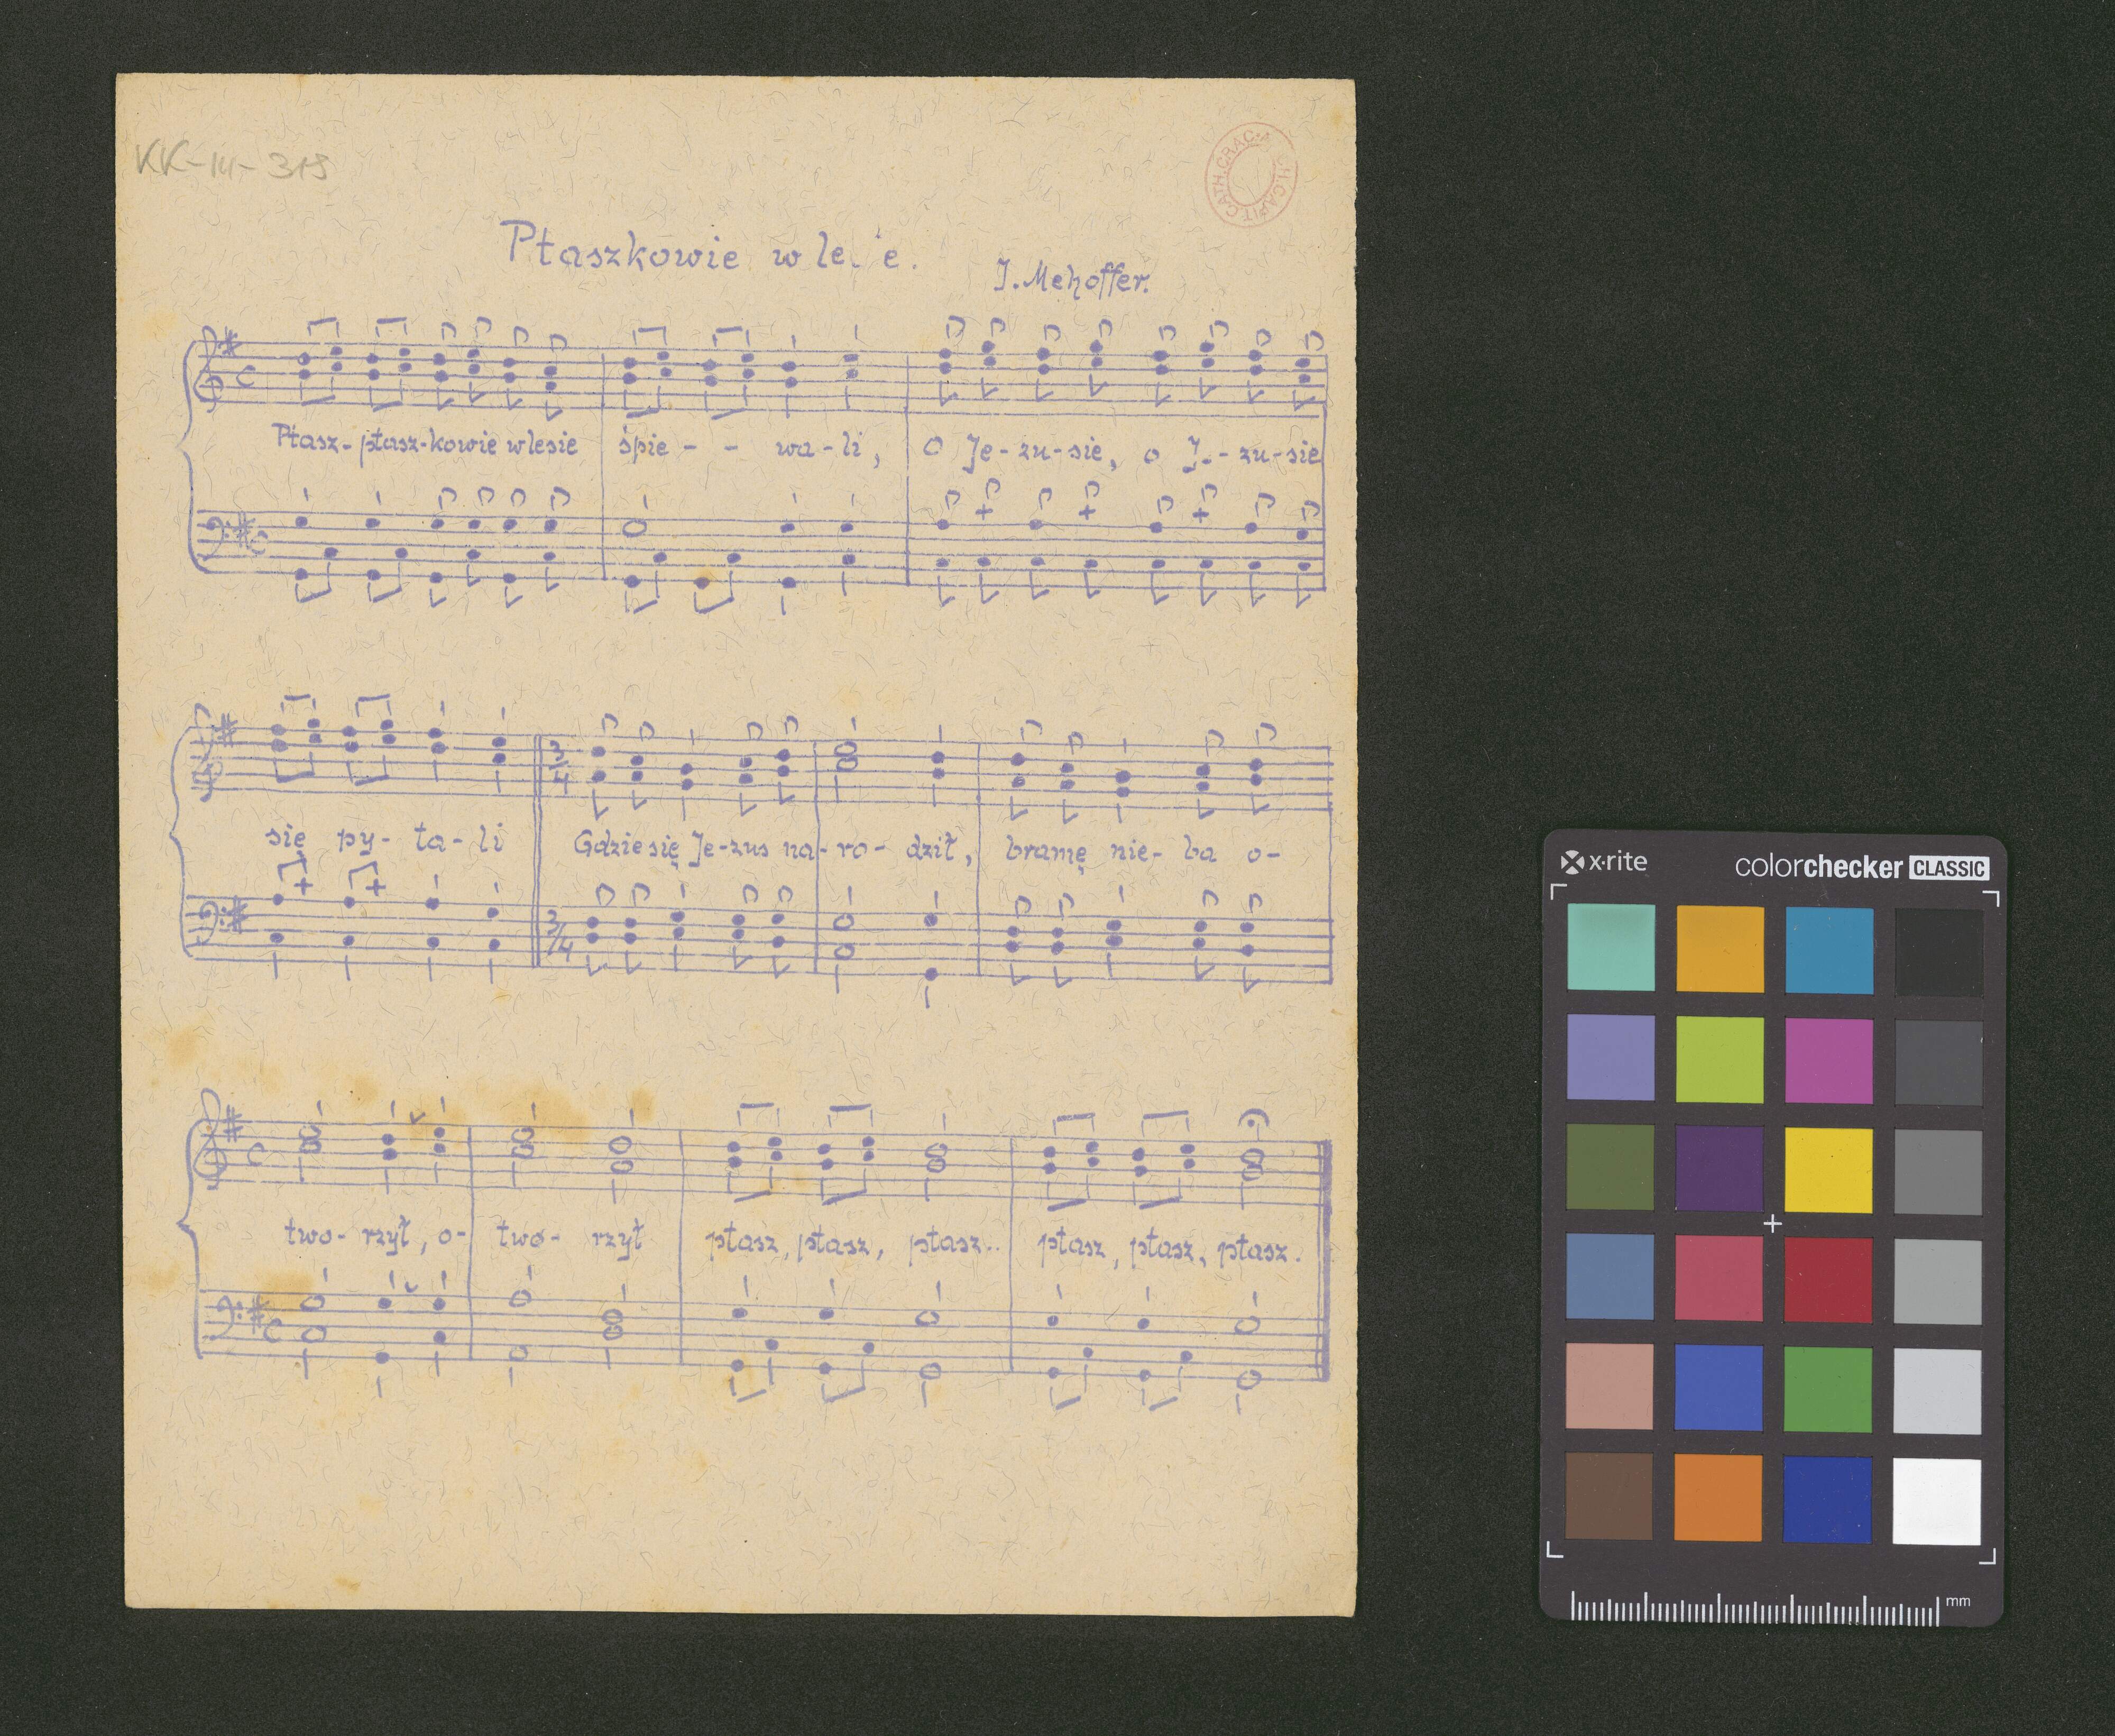 KK-III-319
CATH. CRAC. CH. CAPIT.
Ptaszkowie w le e.
J. Mehoffer.
Ptasz-ptasz-kowie w lesie śpie - - wa-li, O Je-zu-sie, o J.-zu-sie
się py-ta-li Gdzie się Je-zus na-ro-dził, bramę nie-ba o-
3/4
3/4
two-rzył, o-two-rzył ptasz, ptasz, ptasz.. ptasz, ptasz, ptasz.
x·rite
colorchecker CLASSIC
mm